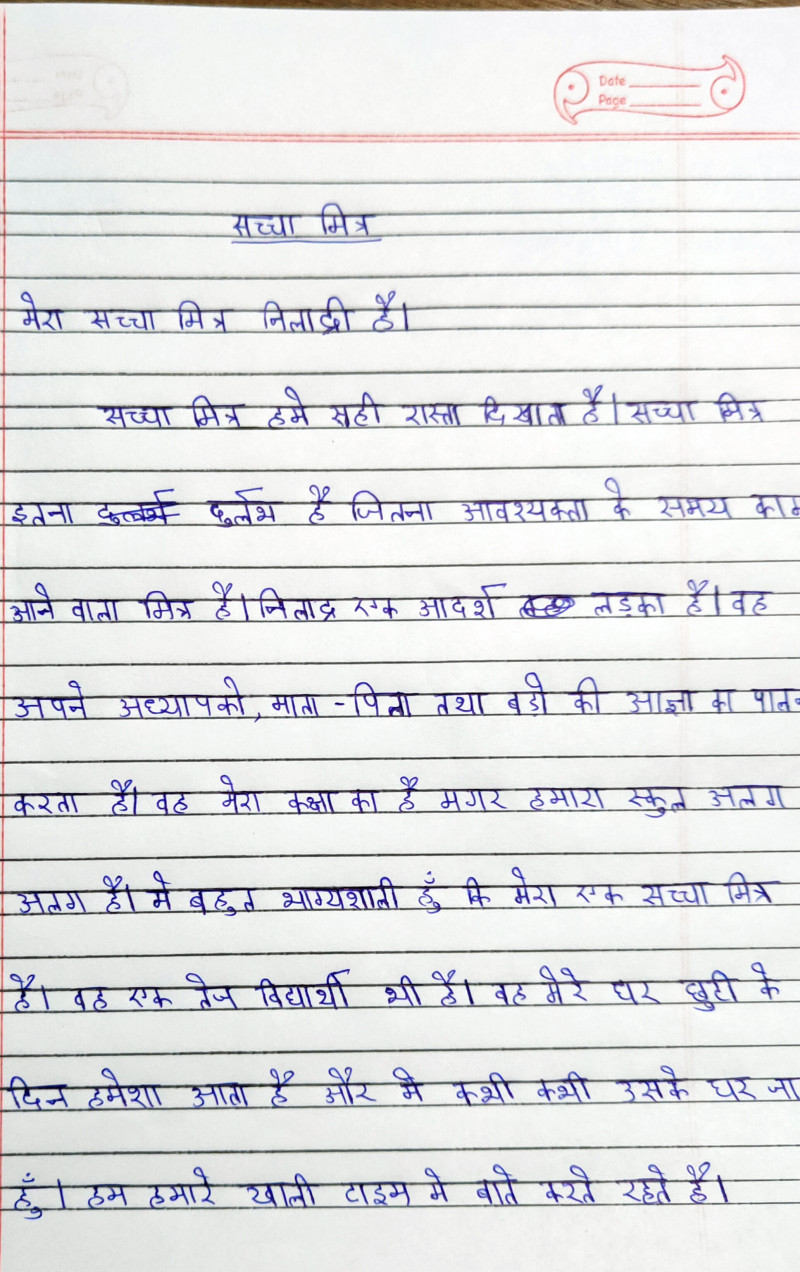 Date
Page
सच्चा मित्र
मेरा सच्चा मित्र निलाद्री है।
सच्चा मित्र हमे सही रास्ता दिखाता है। सच्चा मित्र
इतना दुर्लभ है जितना आवश्यकता के समय काम
आने वाला मित्र है। निलाद्र एक आदर्श लड़का है। वह
अपने अध्यापको, माता - पिता तथा बड़ो की आज्ञा का पालन
करता है। वह मेरा कक्षा का है मगर हमारा स्कुल अलग
अलग है। मे बहुत भाग्यशाली हुँ कि मेरा एक सच्चा मित्र
है। वह एक तेज विद्यार्थी भी है। वह मेरे घर छुटी के
दिन हमेशा आता है और मे कभी कभी उसके घर जा
हुँ। हम हमारे खाली टाइम मे बाते करते रहते है।